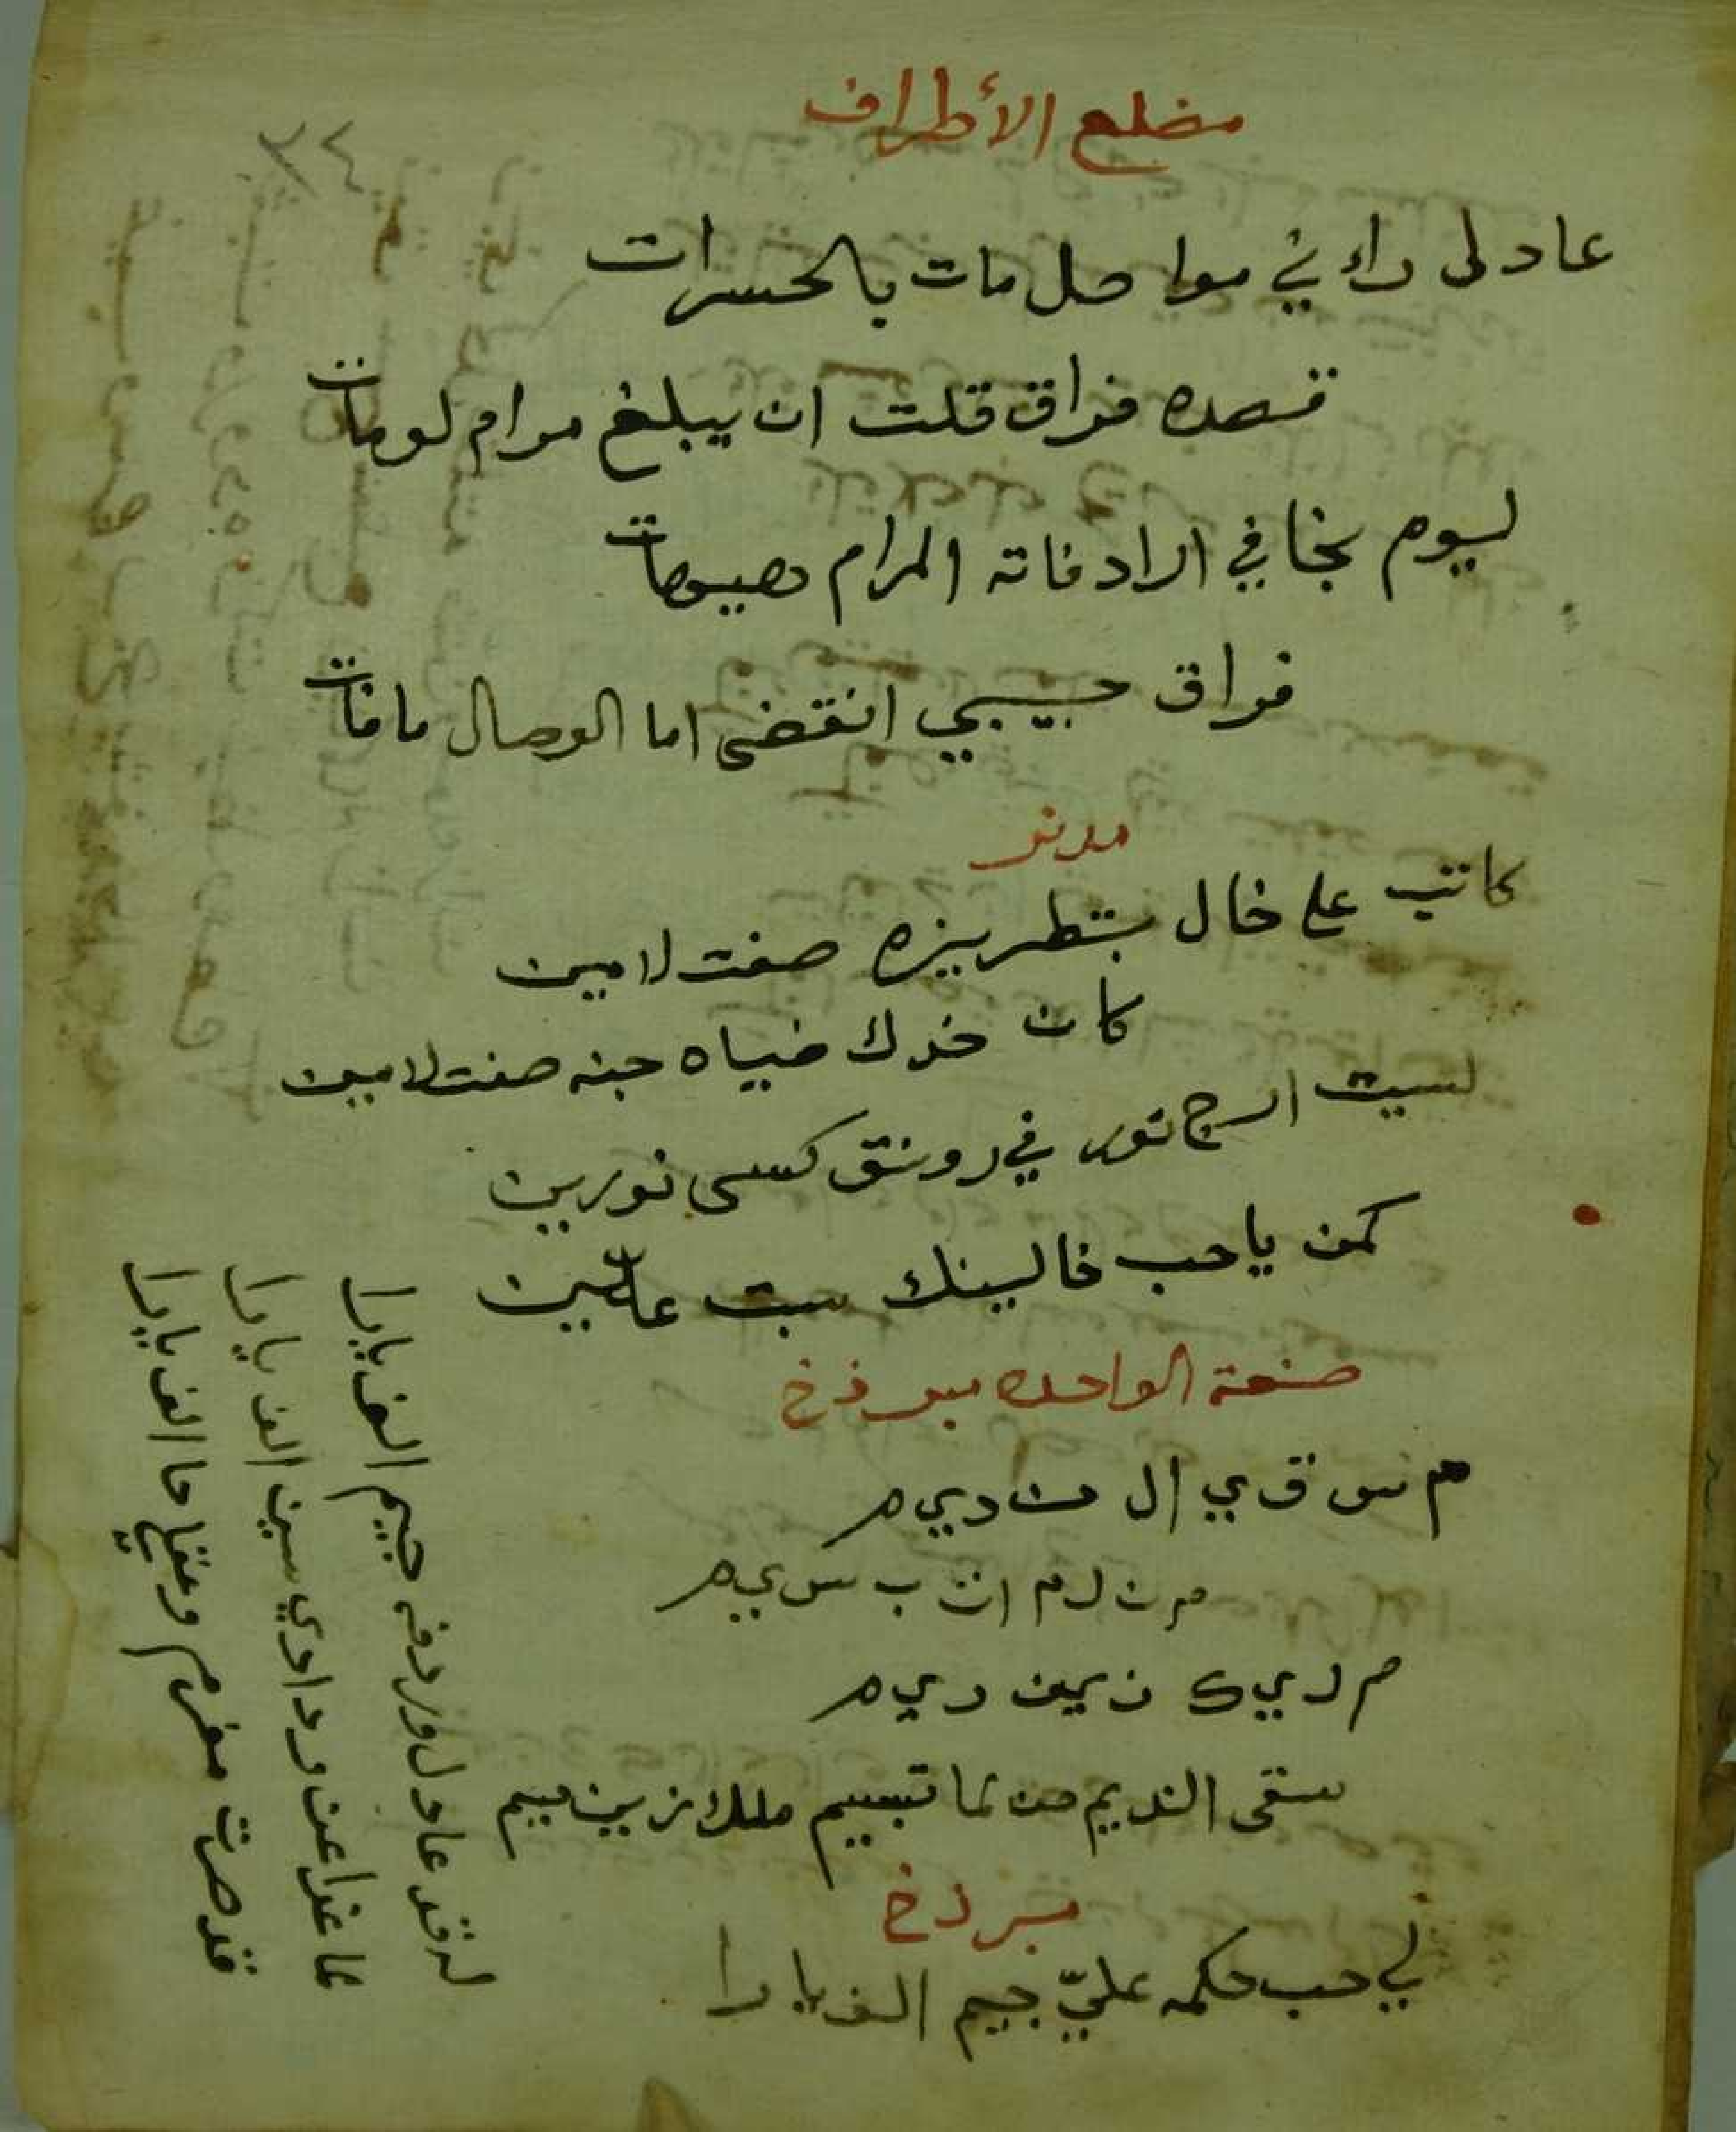 مضلع الأطراف
عادلى راءني مواصل مات بالحسرات
قصده فراق قلت ان يبلغ مرام لومات
ليوم بخافي اراد فاته المرام وهيهات
فراق حبيبي انقضى اما الوصال ما فات
كاتب على خال بتطريزه صفت لامين
كان خدك ضياه جنه صفت لامين
لسيت اسرج نور في رونق كسى نورين
كمن ياحب خالينك سبت عالمين
صنعة الواحده بر ذخ
م س ق ي ال ن دي م
م ن ل م ا ت ب س ي م
م ل ي ك ز ين ري م
سقى النديم من لما تبسيم ملك زين ميم
بر ذخ
لي حب حكمه عليّ جيم الف يا را
له قد عادل وردف جيم الف يا را
لما غدا عن ودادي سين الف يا را
قد صرت مغرم وعقلي حا الف يا را
٣٤